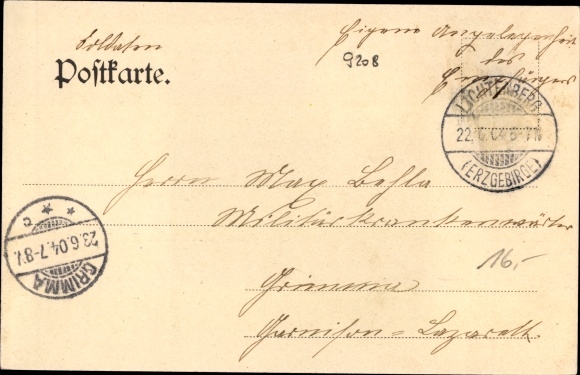 Soldaten
Postkarte.
Eigene Angelegenheit
des
Empfängers
9208
LICHTENBERG
22.6.04.6-7N
(ERZGEBIRGE)
Herrn Max Behla
Militärkrankenwärter
GRIMMA
23.6.04.7-8V.
C
16,-
Grimma
Garnison=Lazarett.